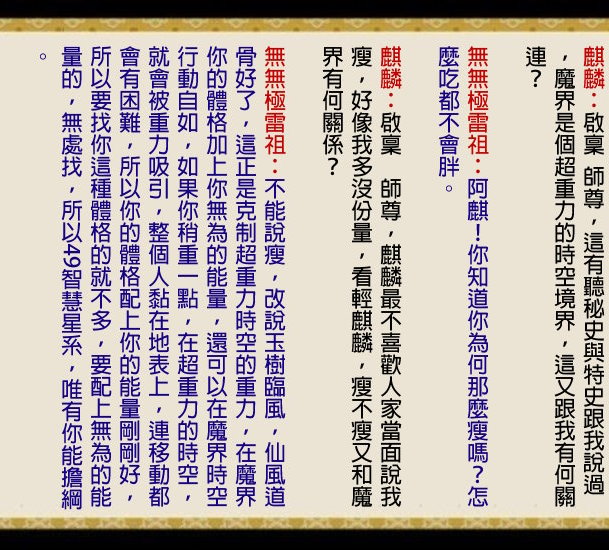 麒麟：啟稟 師尊，這有聽秘史與特史跟我說過
，魔界是個超重力的時空境界，這又跟我有何關
連？
無無極雷祖：阿麒！你知道你為何那麼瘦嗎？怎
麼吃都不會胖。
麒麟：啟稟 師尊，麒麟最不喜歡人家當面說我
瘦，好像我多沒份量，看輕麒麟，瘦不瘦又和魔
界有何關係？
無無極雷祖：不能說瘦，改說玉樹臨風，仙風道
骨好了，這正是克制超重力時空的重力，在魔界
你的體格加上你無為的能量，還可以在魔界時空
行動自如，如果你稍重一點，在超重力的時空，
就會被重力吸引，整個人黏在地表上，連移動都
會有困難，所以你的體格配上你的能量剛剛好，
所以要找你這種體格的就不多，要配上無為的能
量的，無處找，所以49智慧星系，唯有你能擔綱
。